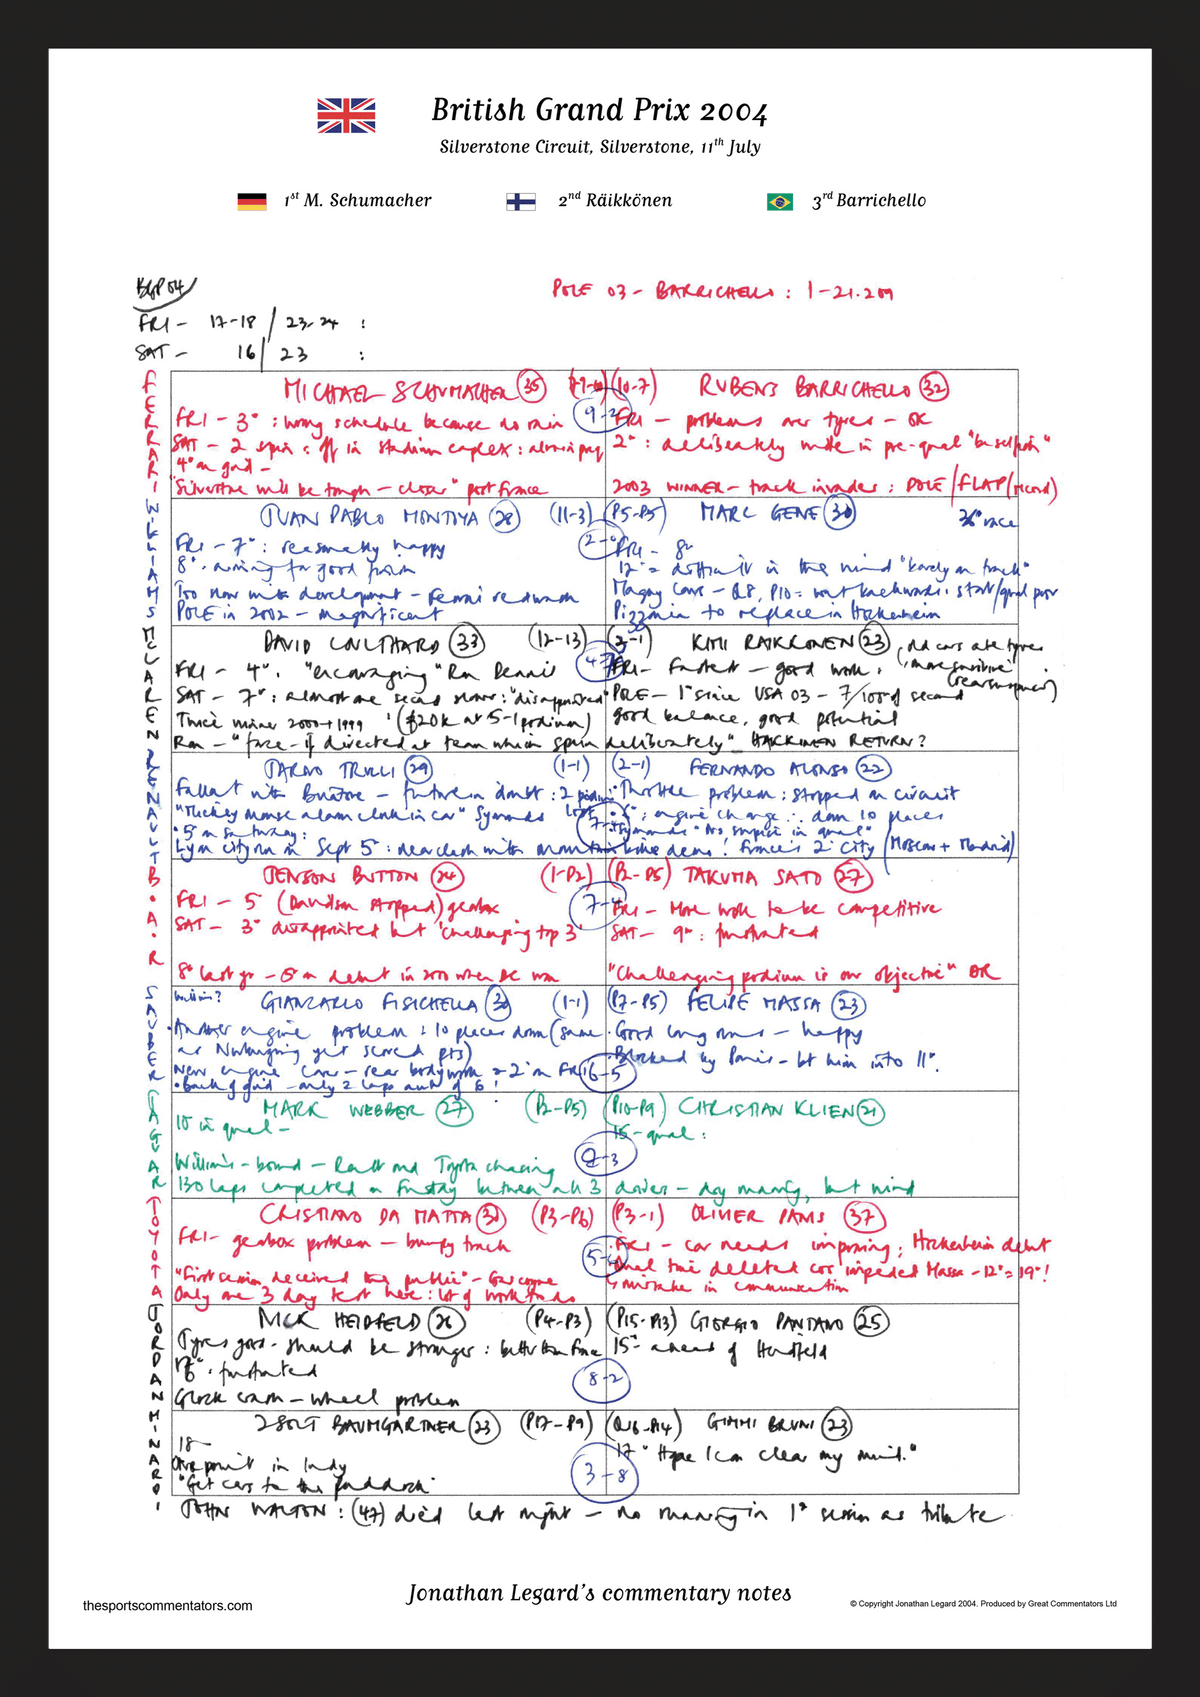 British Grand Prix 2004
Silverstone Circuit, Silverstone, 11th July
1st M. Schumacher
2nd Räikkönen
3rd Barrichello
BGP 04
POLE 03 - BARRICHELLO : 1-21.209
FRI - 17-18 / 23-24 :
SAT - 16 / 23 :
FERRARI
MICHAEL SCHUMACHER 35
(10-7) RUBENS BARRICHELLO 32
FRI - 3° : wrong schedule because no rain
FRI - problems over tyres - OK
SAT - 2 spin : off in stadium complex :
2° : deliberately wide in pre-qual
4° on grid -
"Silverstone will be tough - closer" post France
2003 WINNER - track invader : POLE / FLAP (record)
WILLIAMS
JUAN PABLO MONTOYA 28 (11-3)
(P5-P5) MARC GENE 30
36° race
FRI - 7° : reasonably happy
FRI - 8°
8° - aiming for good finish
12° = difficult in the wind "barely on track"
Too slow with development - Ferrari
Magny Cours - Q8, P10 = went backwards : start/
POLE in 2002 - magnificent
Pizzonia to replace in Hockenheim
MCLAREN
DAVID COULTHARD 33 (12-13)
(2-1) KIMI RAIKKONEN 23
FRI - 4° . "encouraging" Ron Dennis
FRI - Fastest - good work.
"more sensitive"
SAT - 7° : almost one second slower : "disappointed"
POLE - 1st since USA 03 - 7/100 of second
Twice winner 2000 + 1999 (£20k at 5-1 podium)
good balance, good potential
Ron - "farce - if directed at team which spun deliberately" HAKKINEN RETURN?
RENAULT
JARNO TRULLI 29 (1-1)
(2-1) FERNANDO ALONSO 22
Fallout with Briatore - future in doubt : 2 podium
Throttle problem : stopped on circuit
"Mickey mouse alarm clock in car" Symonds
6° : engine change ∴ down 10 places
5° on Saturday :
Symonds "No surprise in qual"
Lyon city run in Sept 5 : new clash with
demo! France's 2° City (Moscow + Madrid)
B.A.R
JENSON BUTTON 24 (1-P2)
(P2-P5) TAKUMA SATO 27
7-4
FRI - 5 (Davidson stopped) gearbox
FRI - More work to be competitive
SAT - 3° disappointed but 'challenging top 3'
SAT - 9° : frustrated
8° last yr - 5° on debut in 2000 when DC won
"Challenging podium is our objective" DR
SAUBER
Williams?
GIANCARLO FISICHELLA 30 (1-1)
(P7-P5) FELIPE MASSA 23
Another engine problem : 10 places down (same
Good long runs - happy
as Nurburgring yet scored pts)
Blocked by Panis - let him into 11°.
New engine cover - rear bodywork = 2° on FRI
6-5
Back of grid - only 2 laps
JAGUAR
MARK WEBBER 27 (P2-P5)
(P10-P9) CHRISTIAN KLIEN 21
10 in qual -
15 - qual :
2-3
Williams - bound - Renault and Toyota chasing
130 laps completed on Friday between all 3 drivers - dry running, but wind
TOYOTA
CRISTIANO DA MATTA 30 (P3-P6)
(P3-1) OLIVIER PANIS 37
FRI - gearbox problem - bumpy track
FRI - car needs improving ; Hockenheim debut
Qual time deleted cos' impeded Massa - 12° = 19°!
"First session deceived the public" - Gascoyne
mistake in communication
Only one 3 day test here : lot of work to do
JORDAN
NICK HEIDFELD 26 (P4-P3)
(P15-P13) GIORGIO PANTANO 25
Tyres good - should be stronger : better than France
15° - ahead of Heidfeld
16° - frustrated
8-2
Glock crash - wheel problem
MINARDI
ZSOLT BAUMGARTNER 23 (P17-P9)
(Q16-P14) GIMMI BRUNI 23
18 -
17 "Hope I can clear my mind."
One point in Indy
3-8
"Get cars to the paddock"
JOHN WALTON : (47) died last night - no running in 1st session as tribute
Jonathan Legard's commentary notes
thesportscommentators.com
© Copyright Jonathan Legard 2004. Produced by Great Commentators Ltd